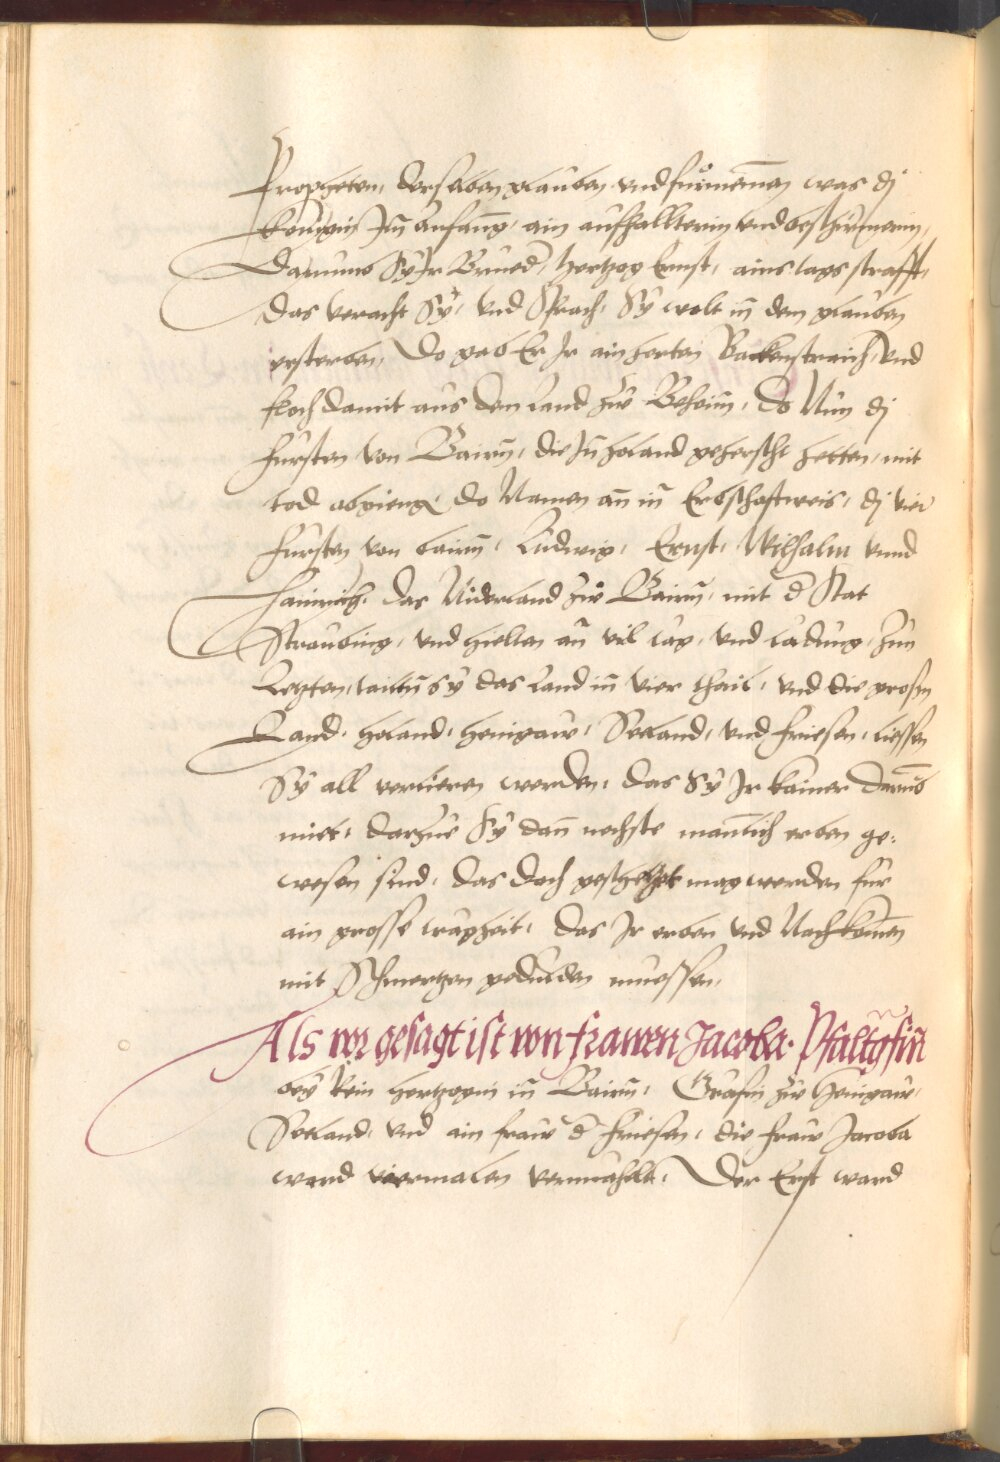 Propheten, derselben glauben und fürnemen was dj
Künigin Im anfang, ain aufhallterin und beschirmerin,
Darumb Sy Ir Brueder, hertzog Ernst, ains tags strafft,
das veracht Sy, und Sprach, Sy wolt in dem glauben
ersterben, Do gab Er Ir ain herten Backenstraich, und
floch damit aus dem land zw Behaim, Do Nun dj
fursten von Bairn, die In holand geherscht hetten, mit
tod abgieng, do Namen an in Erbschaftweis, dj vier
fursten von bairn, Ludwig, Ernst, Wilhalm unnd
Hainrich, das Niderland zw Bairn, mit der Stat
Straubing, und hielten an vil tag, und ladung, zum
Letzten, tailtn sy das land in vier thail, und die grossn
Land, holand, henigaw, Seeland, und friesen, liessen
Sy all verlieren werden, das Sy Ir kainer darumb
miet, darzue Sy dan nechste manlich erben ge:
wesen sind, das doch geschetzt mag werden fur
ain grosse tragheit, das Ir erben und Nachkomen
mit Schmertzen gedulden muessen,
Als vor gesagt ist von frawen Jacoba. Pfaltzgrfin
bey Rein hertzogin in Bairn, Grafin zw Henigaw,
Seeland, und ain fraw der friesen, die fraw Jacoba
ward viermalen vermahelt, Der Erst ward